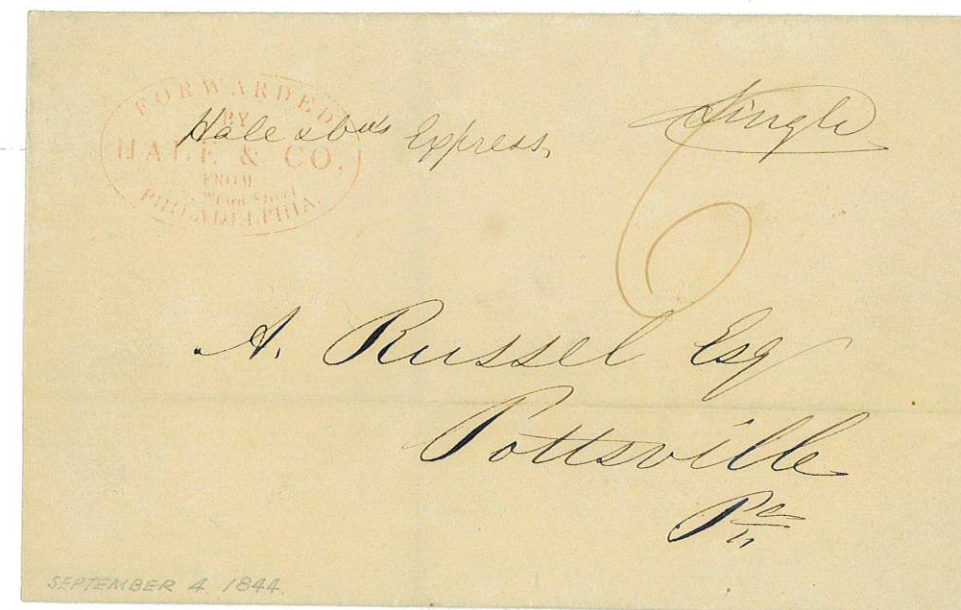 FORWARDED
BY
HALE & CO.
FROM
Third Street
PHILADELPHIA.
Hale & Co's Express,
Single
6
A. Russel Esq
Pottsville
Pa
SEPTEMBER 4. 1844.